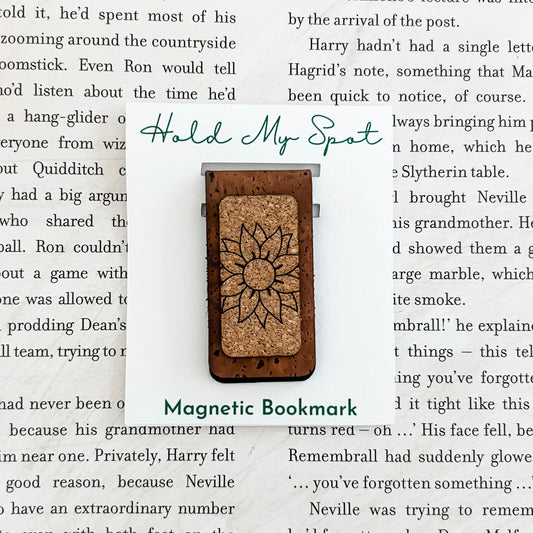 told it, he'd spent most of his
zooming around the countryside
oomstick. Even Ron would tell
who'd listen about the time he'd
a hang-glider
eryone from wiz
out Quidditch
y had a big argum
who shared the
ball. Ron couldn't
about a game with
one was allowed to
prodding Dean's
ll team, trying to
had never been
because his grandmother had
im near one. Privately, Harry felt
good reason, because Neville
o have an extraordinary number
by the arrival of the post.
Harry hadn't had a single lette
Hagrid's note, something that Ma
been quick to notice, of course.
lways bringing him
m home, which he
e Slytherin table.
brought Neville
his grandmother. He
d showed them a
arge marble, which
ite smoke.
mbrall!' he explaine
t things – this tel
ing you've forgotte
d it tight like this
turns red – oh …' His face fell, be
Remembrall had suddenly glowe
'… you've forgotten something …'
Neville was trying to remem
Hold My Spot
Magnetic Bookmark